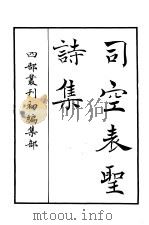 司空表聖
詩集
四部叢刊初編集部
www.mtoou.info